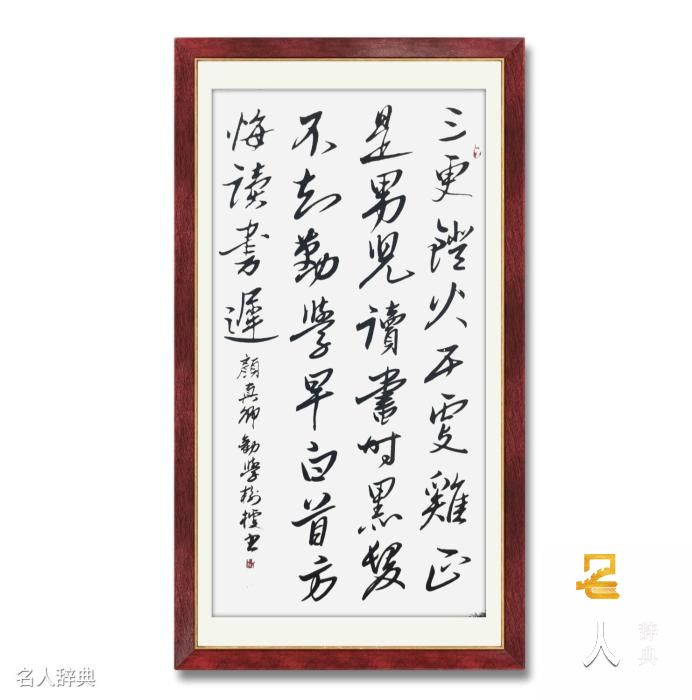 三更鐙火五更雞正
是男兒讀書時黑髮
不知勤學早白首方
悔讀書遲
顏真卿勸學樹书
名人辞典
名人
辞典